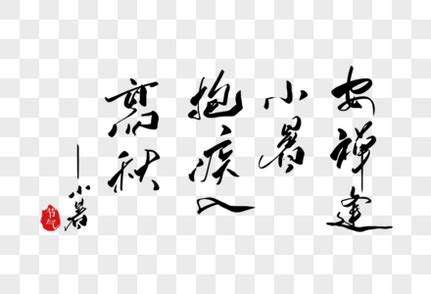 安禅逢
小暑
抱疾入
高秋
—小暑
节气